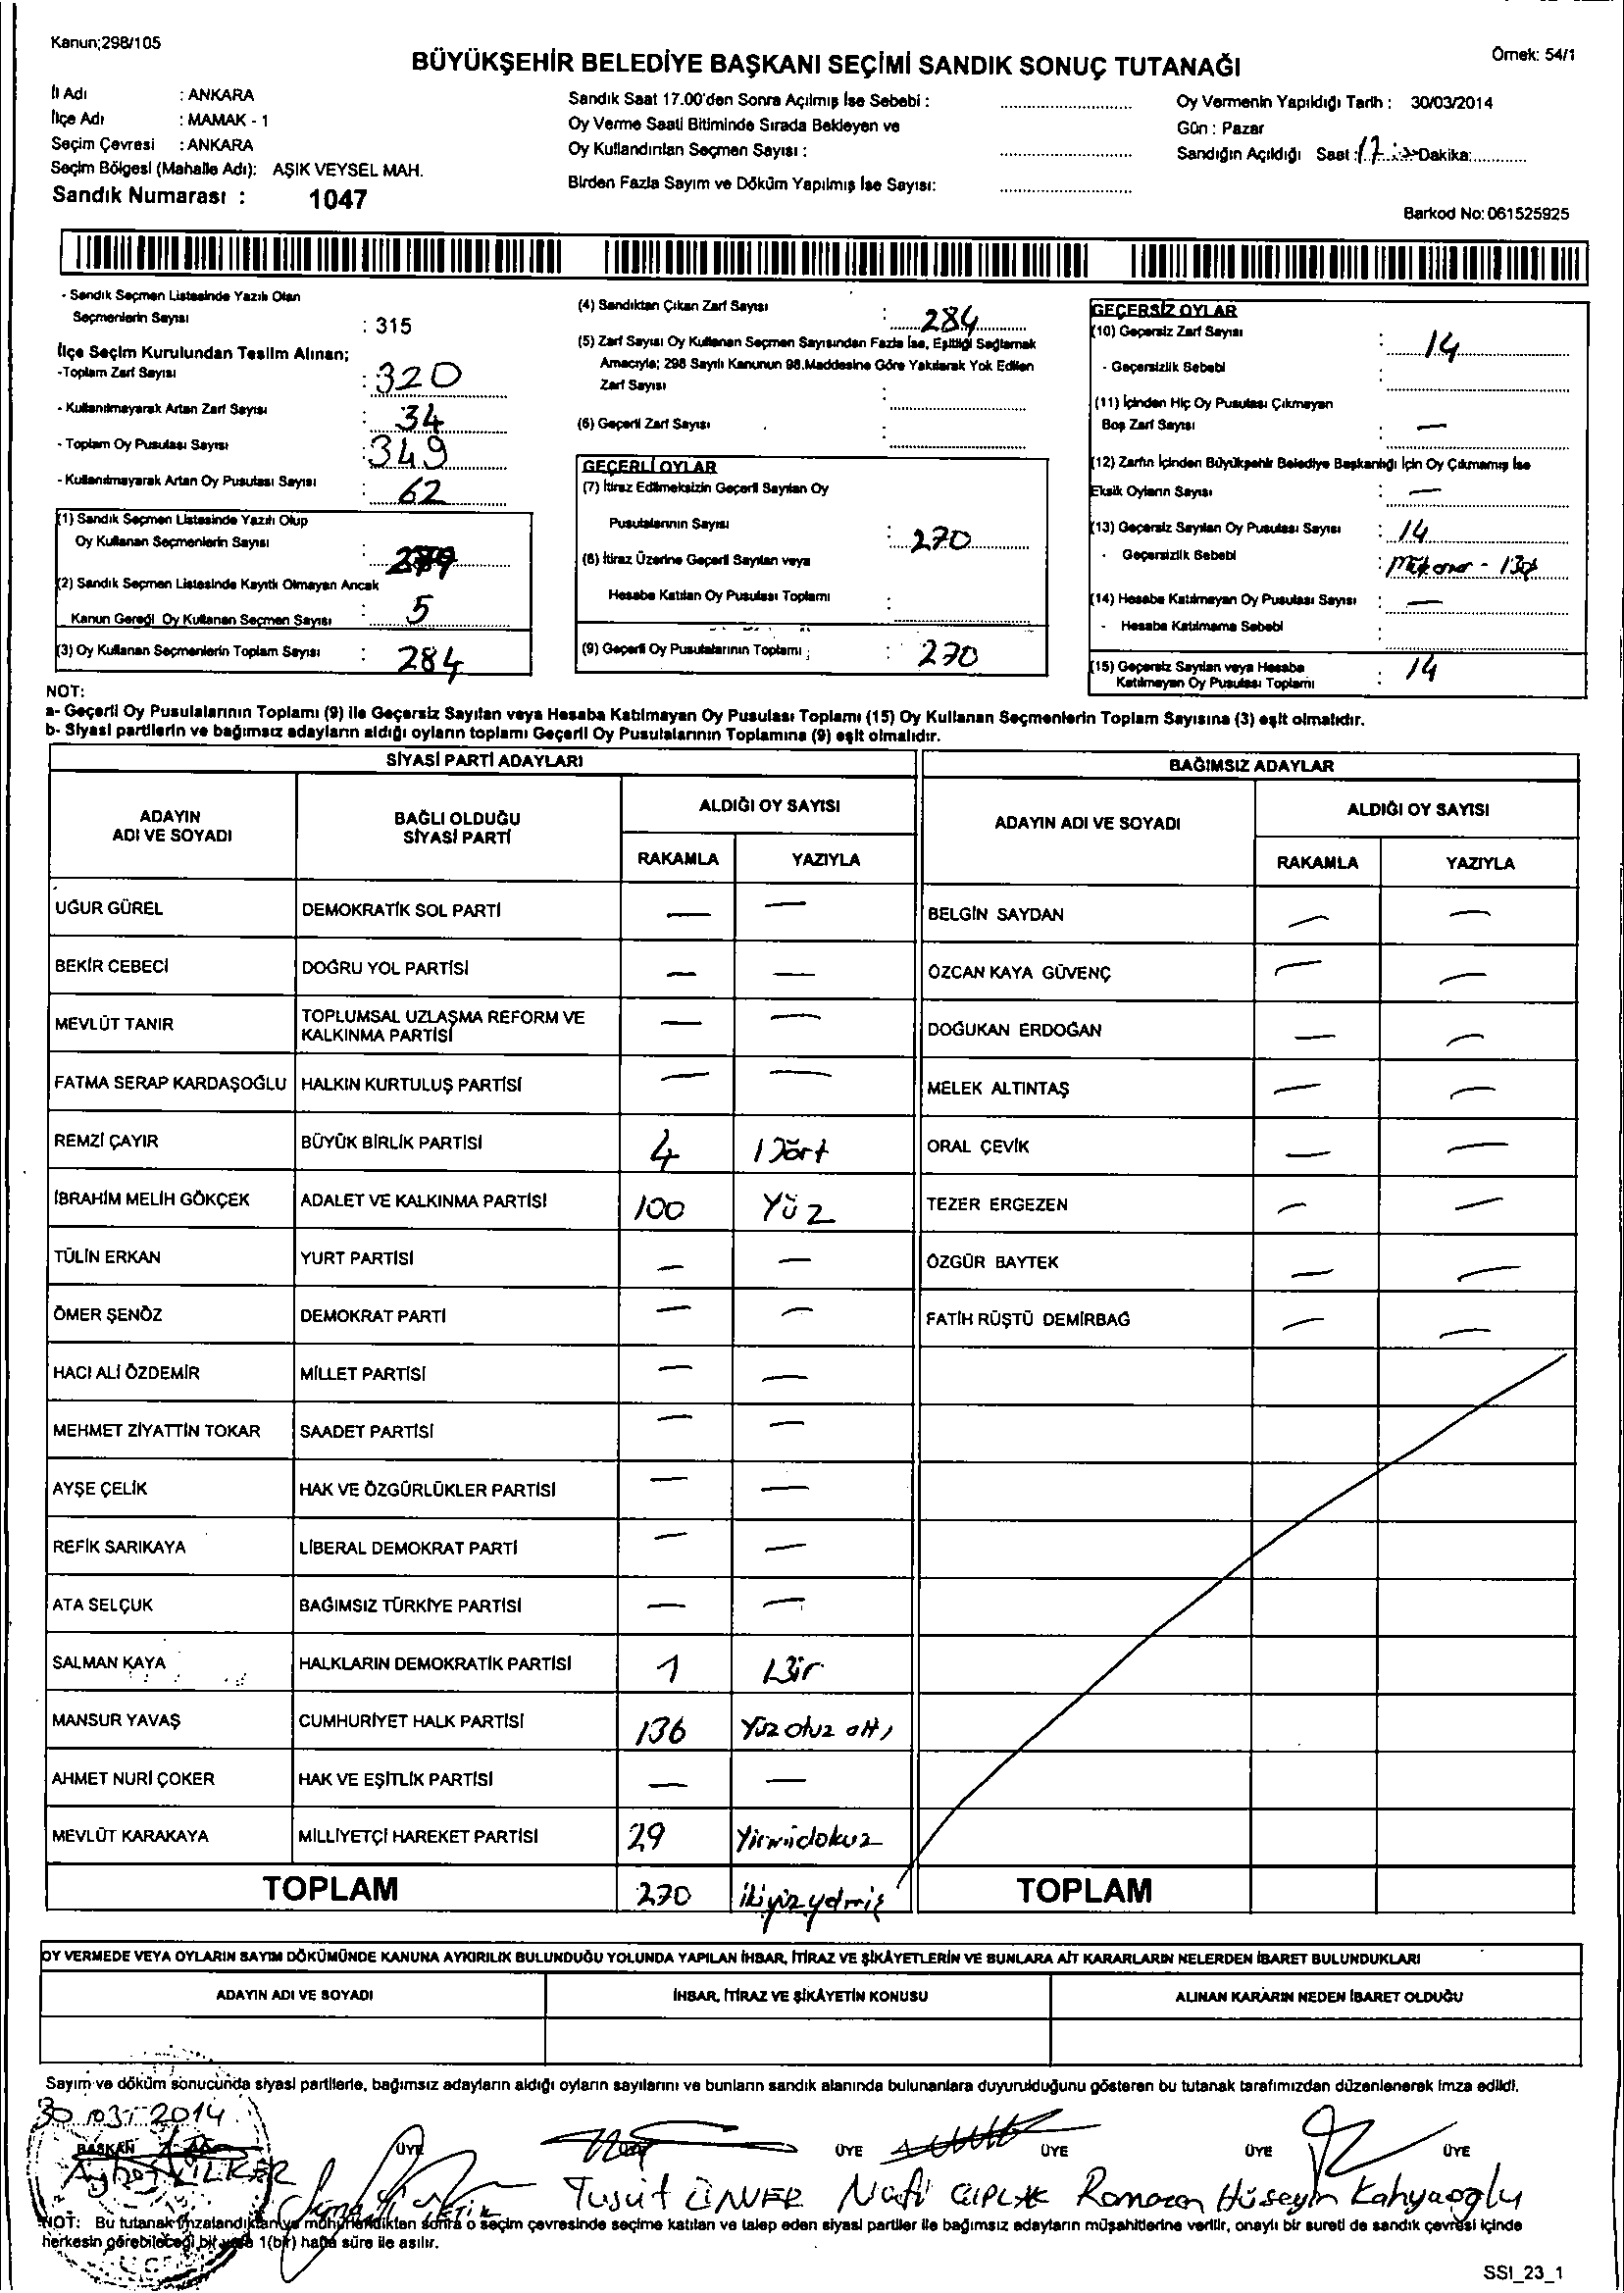 Kanun;298/105
BÜYÜKŞEHİR BELEDİYE BAŞKANI SEÇİMİ SANDIK SONUÇ TUTANAĞI
Örnek: 54/1
İl Adı : ANKARA
İlçe Adı : MAMAK - 1
Seçim Çevresi : ANKARA
Seçim Bölgesi (Mahalle Adı): AŞIK VEYSEL MAH.
Sandık Numarası : 1047
Sandık Saat 17.00'den Sonra Açılmış İse Sebebi :
Oy Verme Saati Bitiminde Sırada Bekleyen ve
Oy Kullandırılan Seçmen Sayısı :
Birden Fazla Sayım ve Döküm Yapılmış İse Sayısı:
Oy Vermenin Yapıldığı Tarih : 30/03/2014
Gün : Pazar
Sandığın Açıldığı Saat : 17 Dakika:
Barkod No: 061525925
- Sandık Seçmen Listesinde Yazılı Olan
Seçmenlerin Sayısı : 315
İlçe Seçim Kurulundan Teslim Alınan;
-Toplam Zarf Sayısı : 320
- Kullanılmayarak Artan Zarf Sayısı : 34
- Toplam Oy Pusulası Sayısı : 349
- Kullanılmayarak Artan Oy Pusulası Sayısı : 62
(1) Sandık Seçmen Listesinde Yazılı Olup
Oy Kullanan Seçmenlerin Sayısı : 279
(2) Sandık Seçmen Listesinde Kayıtlı Olmayan Ancak
Kanun Gereği Oy Kullanan Seçmen Sayısı : 5
(3) Oy Kullanan Seçmenlerin Toplam Sayısı : 284
(4) Sandıktan Çıkan Zarf Sayısı : 284
(5) Zarf Sayısı Oy Kullanan Seçmen Sayısından Fazla İse, Eşitliği Sağlamak
Amacıyla; 298 Sayılı Kanunun 98.Maddesine Göre Yakılarak Yok Edilen
Zarf Sayısı :
(6) Geçerli Zarf Sayısı :
GEÇERLİ OYLAR
(7) İtiraz Edilmeksizin Geçerli Sayılan Oy
Pusulalarının Sayısı : 270
(8) İtiraz Üzerine Geçerli Sayılan veya
Hesaba Katılan Oy Pusulası Toplamı :
(9) Geçerli Oy Pusulalarının Toplamı : 270
GEÇERSİZ OYLAR
(10) Geçersiz Zarf Sayısı : 14
- Geçersizlik Sebebi :
(11) İçinden Hiç Oy Pusulası Çıkmayan
Boş Zarf Sayısı : —
(12) Zarfın İçinden Büyükşehir Belediye Başkanlığı İçin Oy Çıkmamış İse
Eksik Oyların Sayısı : —
(13) Geçersiz Sayılan Oy Pusulası Sayısı : 14
- Geçersizlik Sebebi :
(14) Hesaba Katılmayan Oy Pusulası Sayısı : —
- Hesaba Katılmama Sebebi :
(15) Geçersiz Sayılan veya Hesaba
Katılmayan Oy Pusulası Toplamı : 14
NOT:
a- Geçerli Oy Pusulalarının Toplamı (9) ile Geçersiz Sayılan veya Hesaba Katılmayan Oy Pusulası Toplamı (15) Oy Kullanan Seçmenlerin Toplam Sayısına (3) eşit olmalıdır.
b- Siyasi partilerin ve bağımsız adayların aldığı oyların toplamı Geçerli Oy Pusulalarının Toplamına (9) eşit olmalıdır.
SİYASİ PARTİ ADAYLARI
ADAYIN ADI VE SOYADI BAĞLI OLDUĞU SİYASİ PARTİ ALDIĞI OY SAYISI
RAKAMLA YAZIYLA
UĞUR GÜREL DEMOKRATİK SOL PARTİ — —
BEKİR CEBECİ DOĞRU YOL PARTİSİ — —
MEVLÜT TANIR TOPLUMSAL UZLAŞMA REFORM VE KALKINMA PARTİSİ — —
FATMA SERAP KARDAŞOĞLU HALKIN KURTULUŞ PARTİSİ — —
REMZİ ÇAYIR BÜYÜK BİRLİK PARTİSİ 4 Dört
İBRAHİM MELİH GÖKÇEK ADALET VE KALKINMA PARTİSİ 100 Yüz
TÜLİN ERKAN YURT PARTİSİ — —
ÖMER ŞENÖZ DEMOKRAT PARTİ — —
HACI ALİ ÖZDEMİR MİLLET PARTİSİ — —
MEHMET ZİYATTİN TOKAR SAADET PARTİSİ — —
AYŞE ÇELİK HAK VE ÖZGÜRLÜKLER PARTİSİ — —
REFİK SARIKAYA LİBERAL DEMOKRAT PARTİ — —
ATA SELÇUK BAĞIMSIZ TÜRKİYE PARTİSİ — —
SALMAN KAYA HALKLARIN DEMOKRATİK PARTİSİ 1 Bir
MANSUR YAVAŞ CUMHURİYET HALK PARTİSİ 136 Yüz otuz altı
AHMET NURİ ÇOKER HAK VE EŞİTLİK PARTİSİ — —
MEVLÜT KARAKAYA MİLLİYETÇİ HAREKET PARTİSİ 29 Yirmidokuz
TOPLAM 270 ikiyüzyetmiş
BAĞIMSIZ ADAYLAR
ADAYIN ADI VE SOYADI ALDIĞI OY SAYISI
RAKAMLA YAZIYLA
BELGİN SAYDAN — —
ÖZCAN KAYA GÜVENÇ — —
DOĞUKAN ERDOĞAN — —
MELEK ALTINTAŞ — —
ORAL ÇEVİK — —
TEZER ERGEZEN — —
ÖZGÜR BAYTEK — —
FATİH RÜŞTÜ DEMİRBAĞ — —
TOPLAM
OY VERMEDE VEYA OYLARIN SAYIM DÖKÜMÜNDE KANUNA AYKIRILIK BULUNDUĞU YOLUNDA YAPILAN İHBAR, İTİRAZ VE ŞİKÂYETLERİN VE BUNLARA AİT KARARLARIN NELERDEN İBARET BULUNDUKLARI
ADAYIN ADI VE SOYADI İHBAR, İTİRAZ VE ŞİKÂYETİN KONUSU ALINAN KARARIN NEDEN İBARET OLDUĞU
Sayım ve döküm sonucunda siyasi partilerle, bağımsız adayların aldığı oyların sayılarını ve bunların sandık alanında bulunanlara duyurulduğunu gösteren bu tutanak tarafımızdan düzenlenerek imza edildi.
30/03/2014
BAŞKAN ÜYE ÜYE ÜYE ÜYE ÜYE ÜYE
İLKER Yusuf ÜNVER Nafi Ramazan Hüseyin Kahyaoglu
NOT: Bu tutanak imzalandıktan ve mühürlendikten sonra o seçim çevresinde seçime katılan ve talep eden siyasi partiler ile bağımsız adayların müşahitlerine verilir, onaylı bir sureti de sandık çevresi içinde
herkesin görebileceği bir yere 1(bir) hafta süre ile asılır.
SSI_23_1